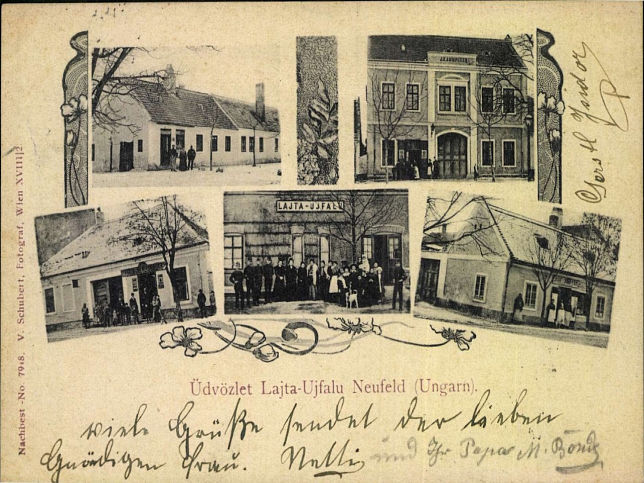 LAJTA-UJFALU
Üdvözlet Lajta-Ujfalu Neufeld (Ungarn).
viele Grüße sendet der lieben
Gnädigen Frau. Netti und Ihr Papa M.
Nachbest.-No. 7918. V. Schubert, Fotograf, Wien XVIII|2
Isidor